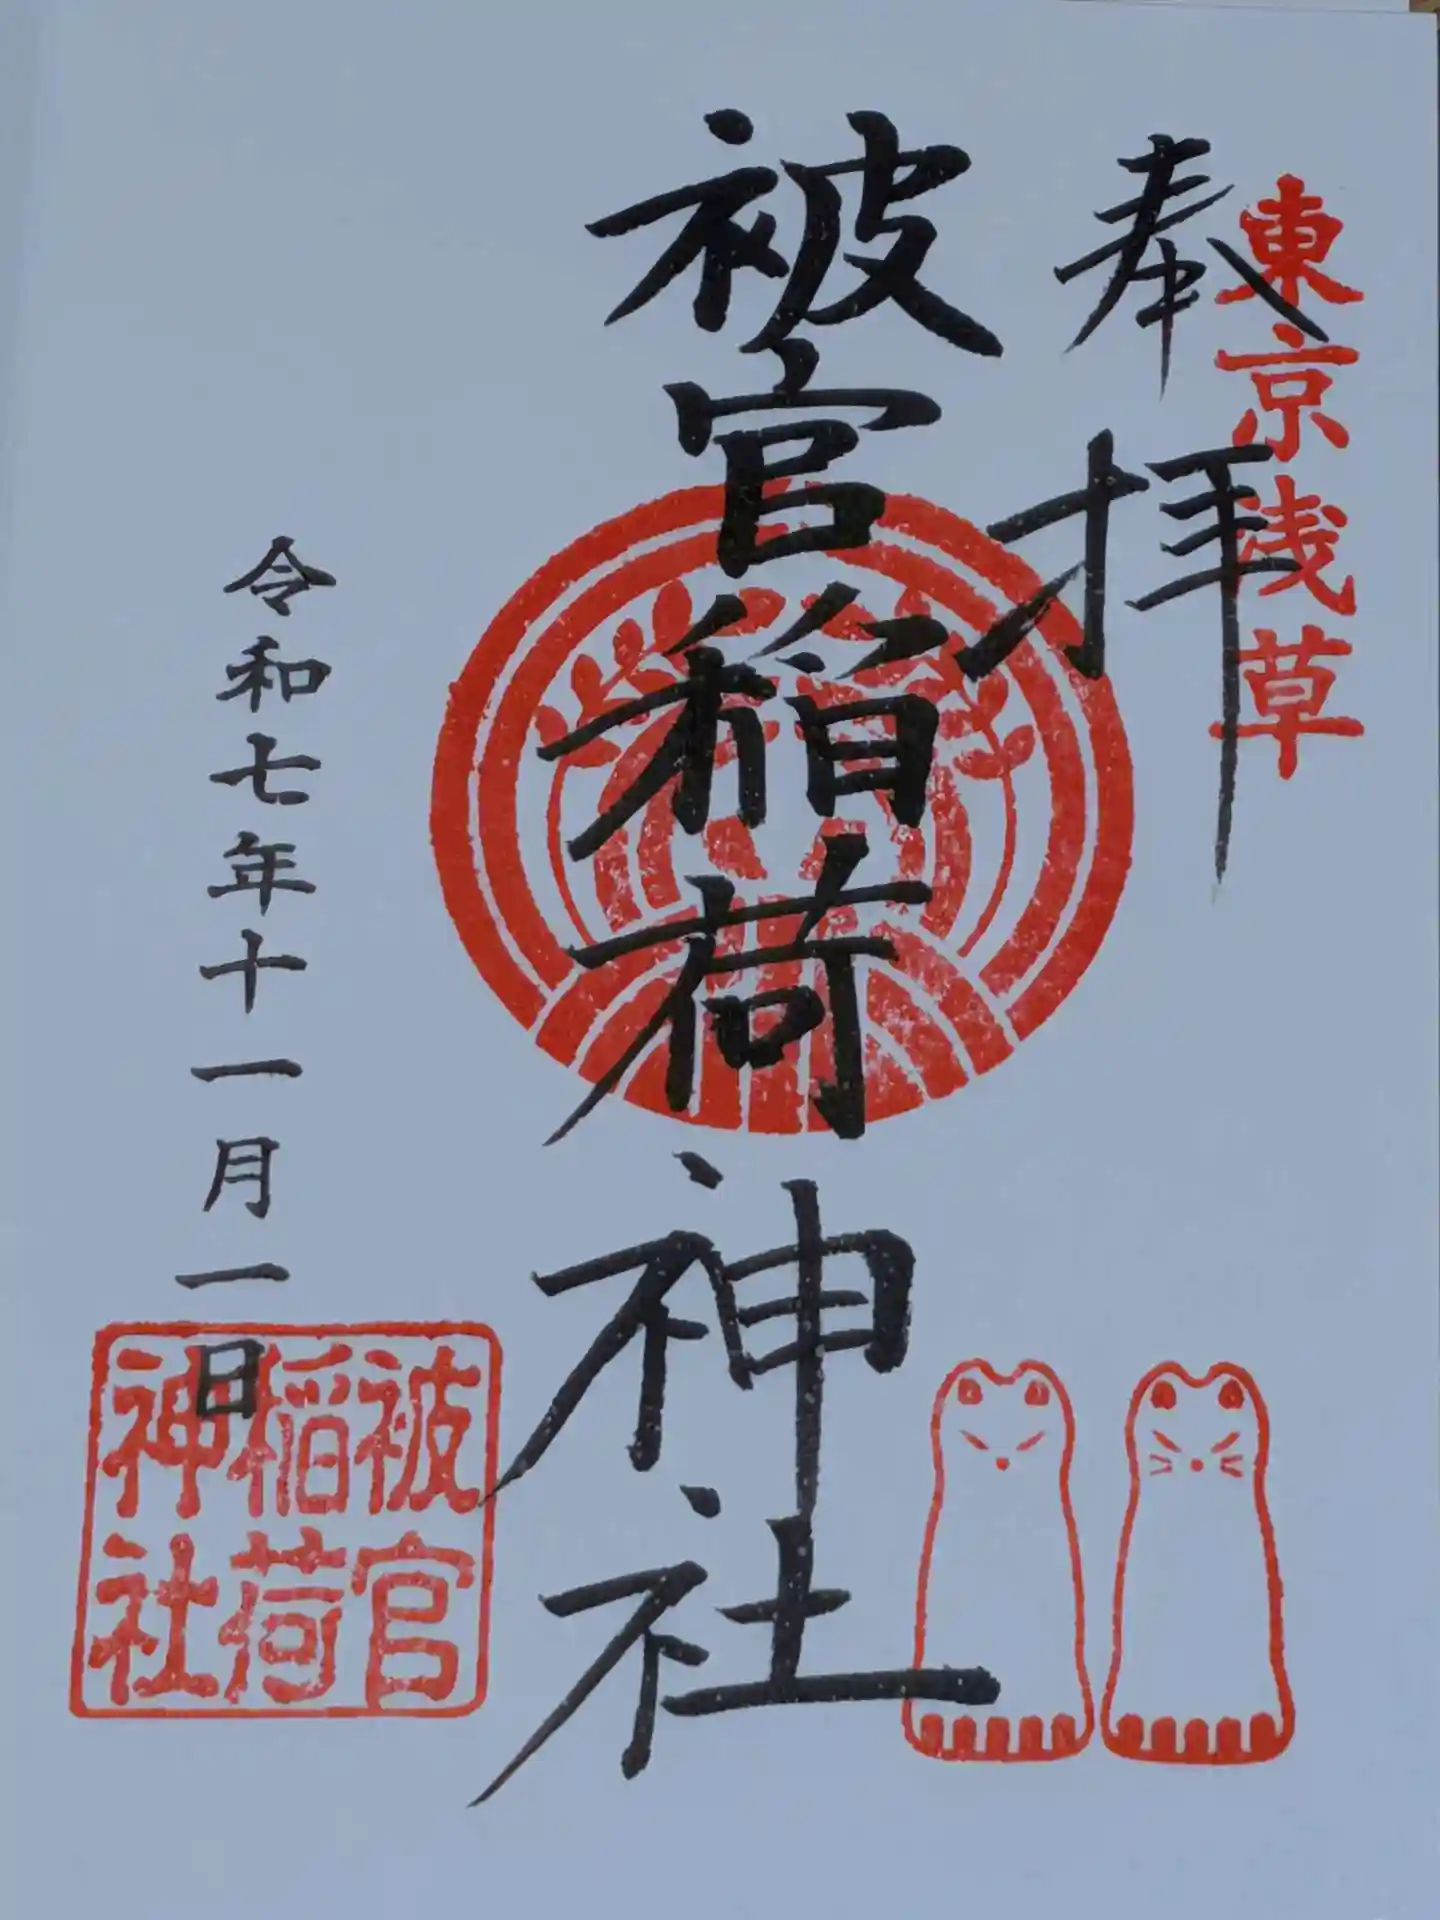 東京浅草
奉拝
被官稲荷神社
令和七年十一月一日
被官
稲荷
神社